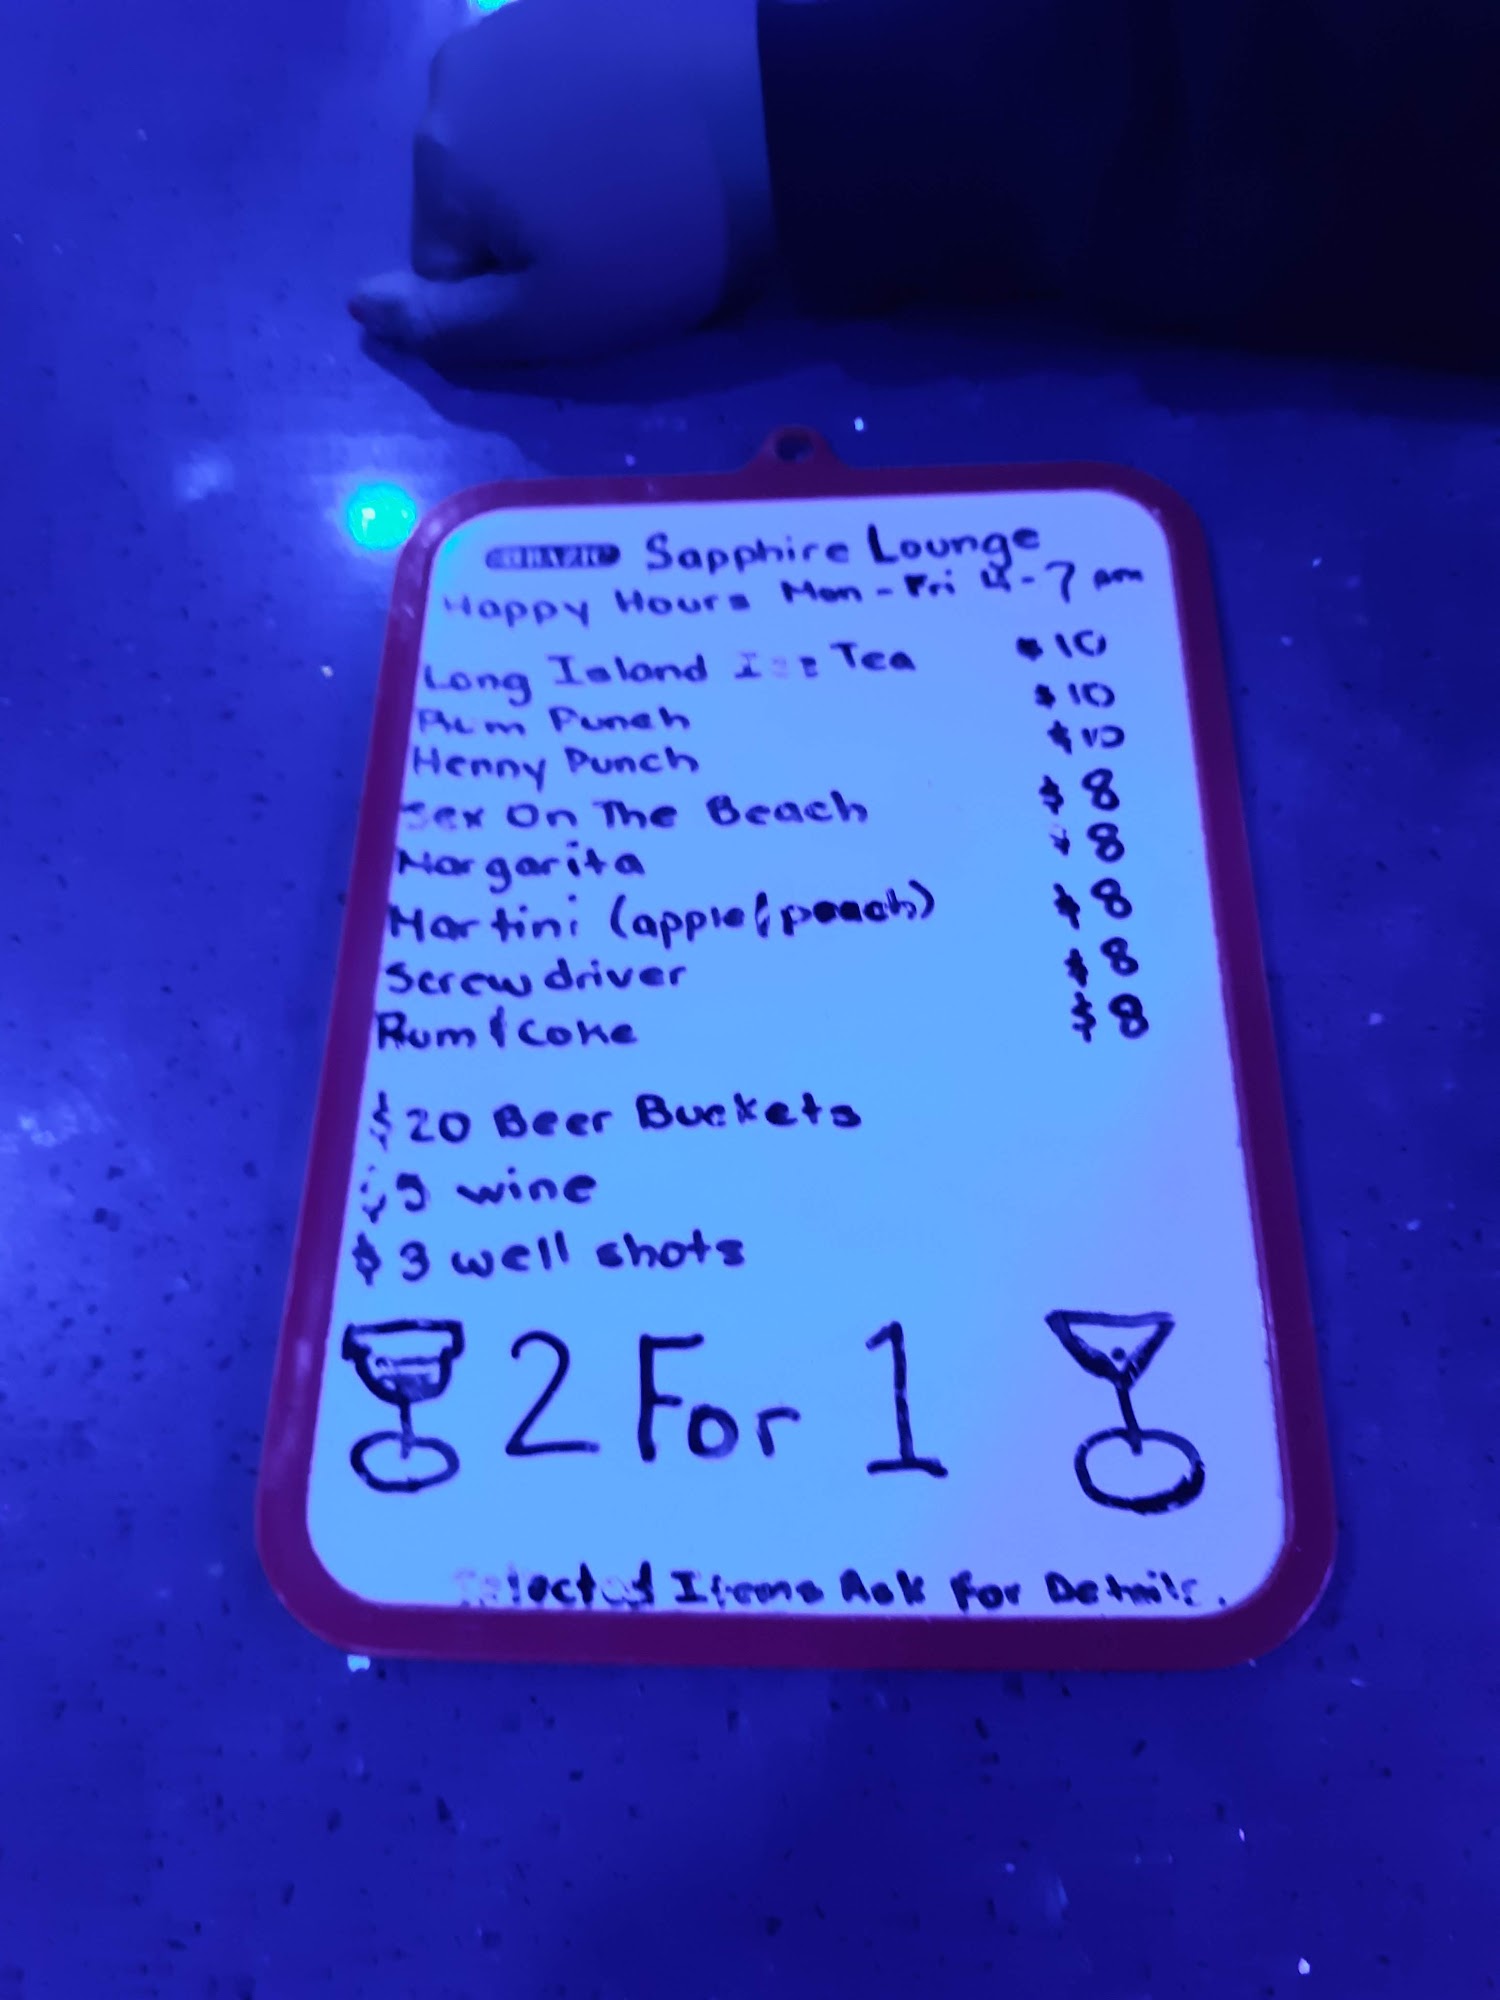 Sapphire Lounge
Happy Hours Mon - Fri 4-7 pm
Long Island Ice Tea $10
Rum Punch $10
Henny Punch $10
Sex On The Beach $8
Margarita $8
Martini (apple/peach) $8
Screwdriver $8
Rum & Coke $8
$20 Beer Buckets
wine
$3 well shots
2 For 1
Selected Items Ask For Details.